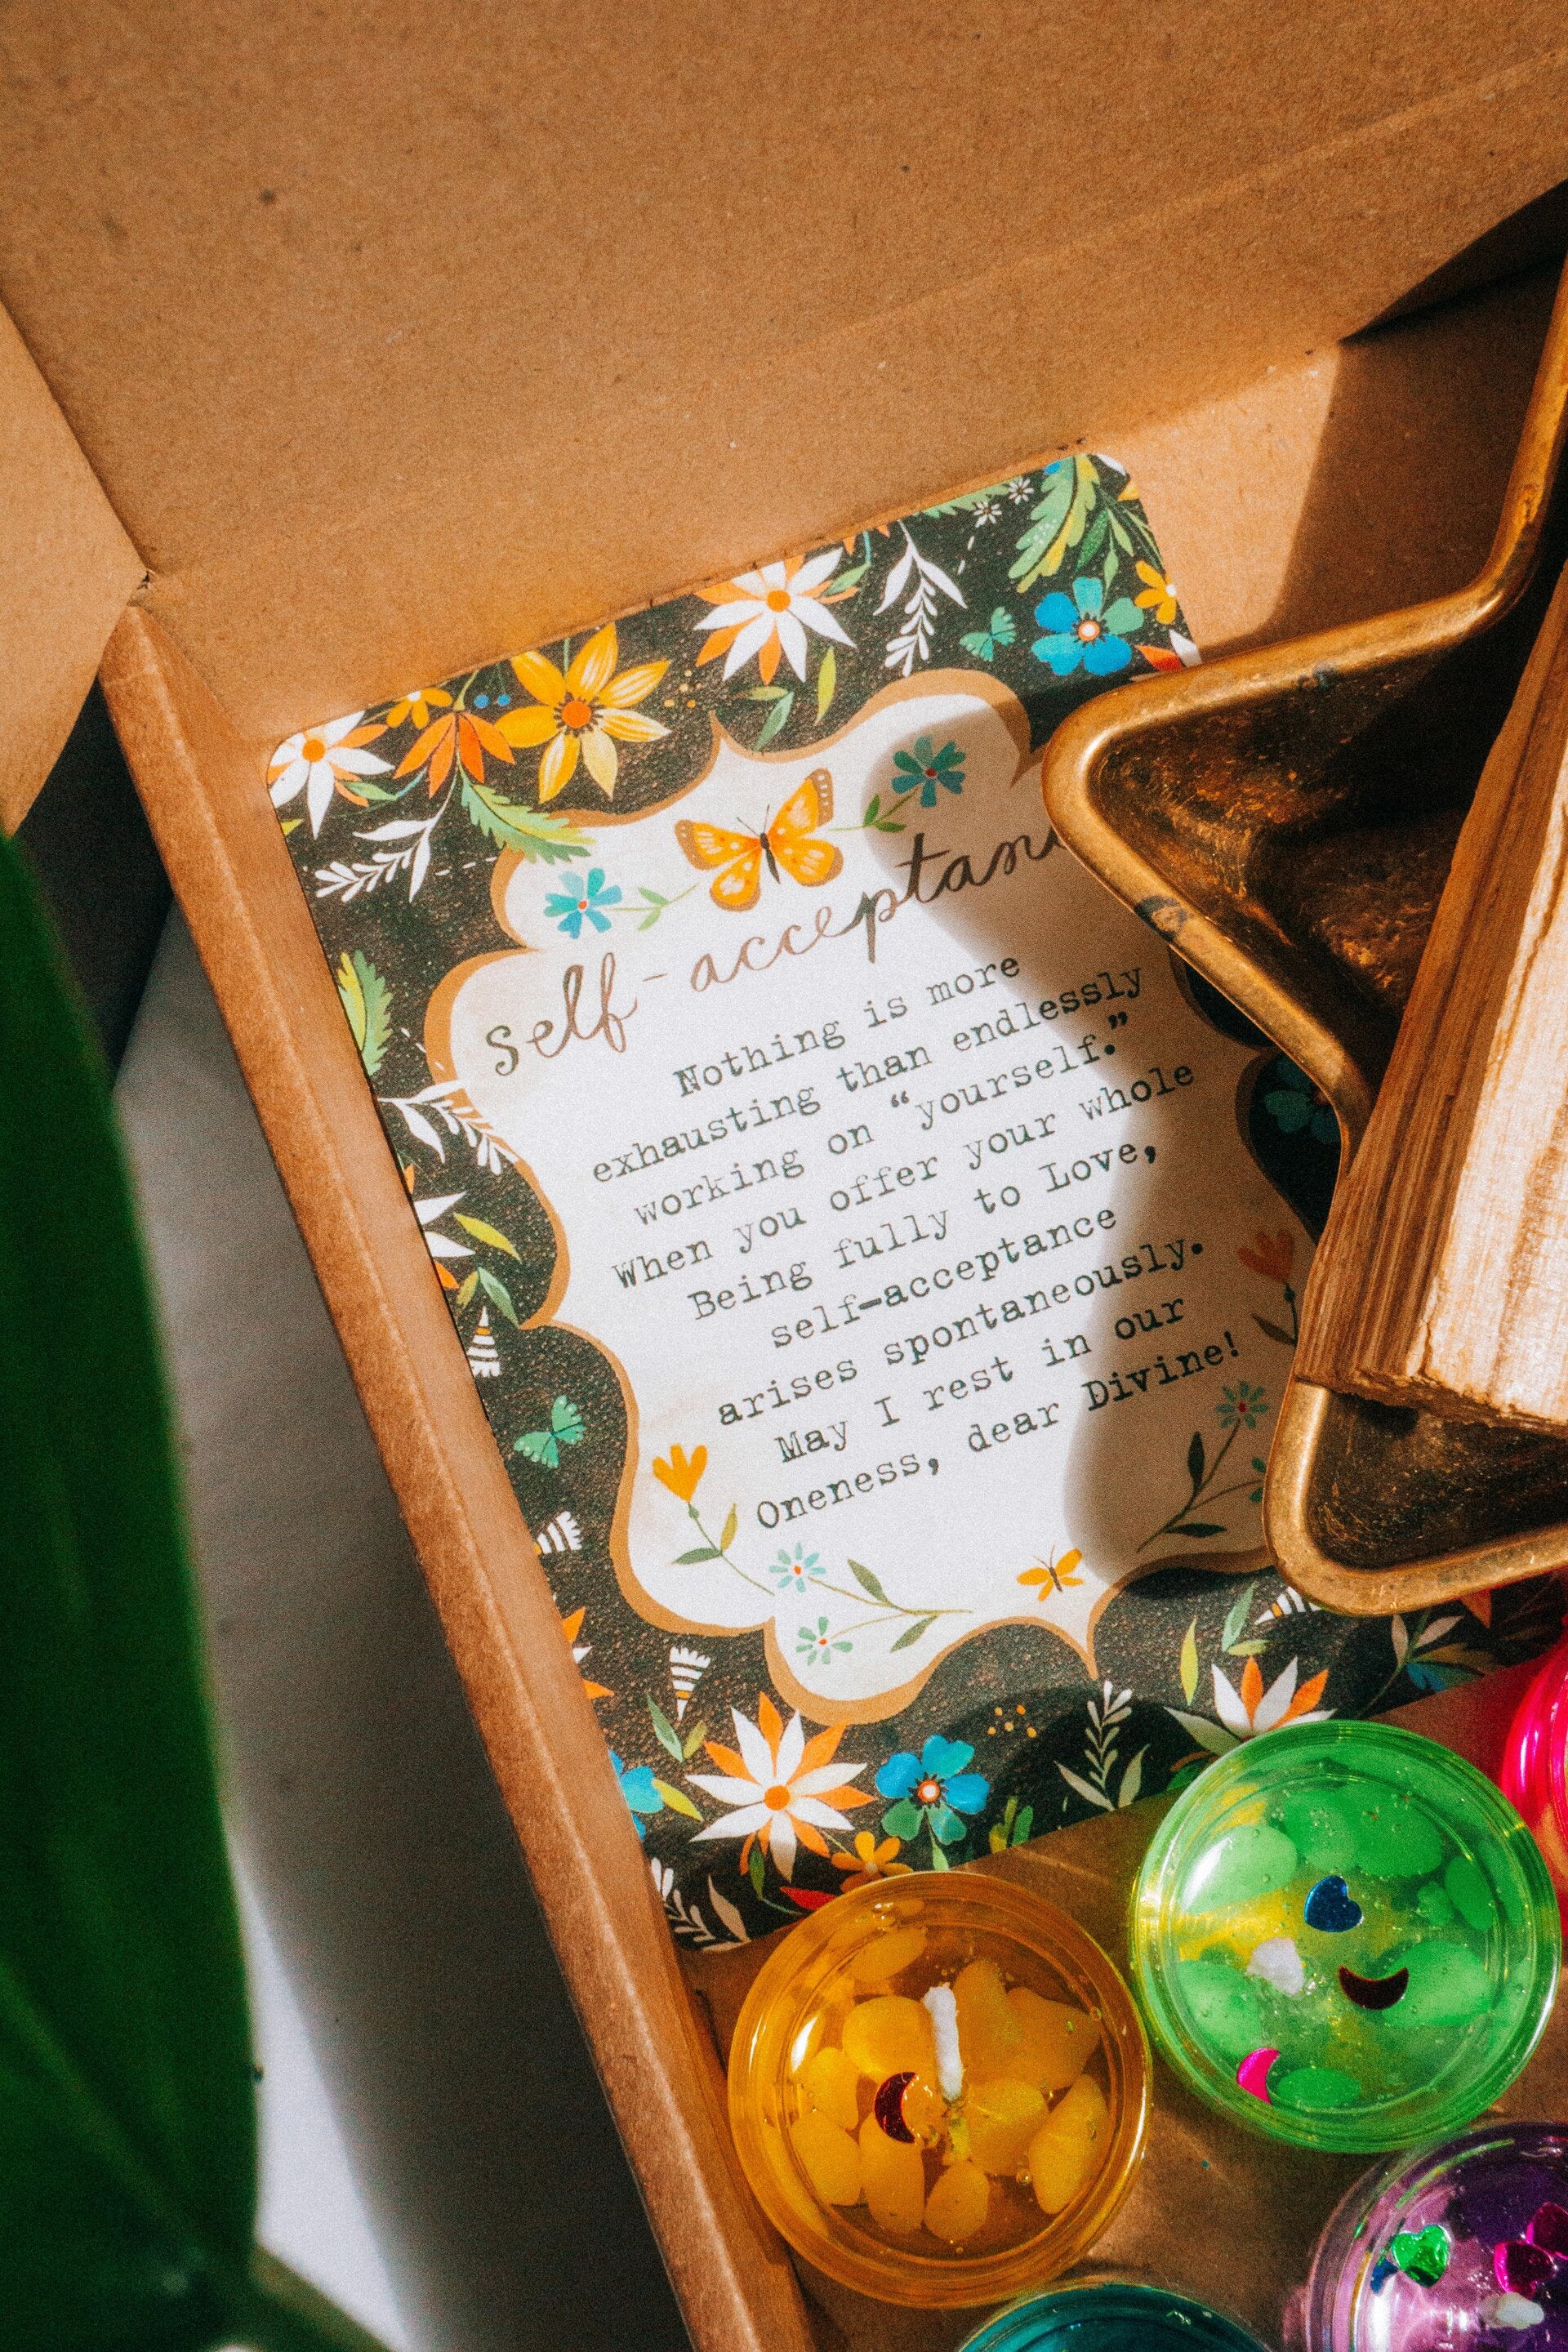 self-acceptanc
Nothing is more
exhausting than endlessly
working on “yourself.”
When you offer your whole
Being fully to Love,
self-acceptance
arises spontaneously.
May I rest in our
Oneness, dear Divine!